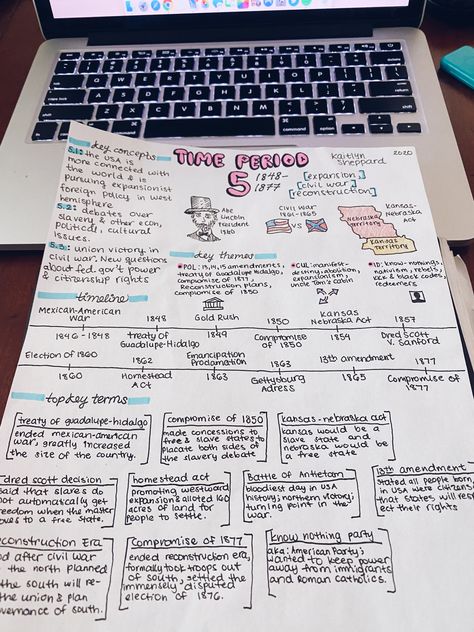 key concepts
5.1: the USA is
more connected with
the world & is
pursuing expansionist
foreign policy in west
hemisphere
5.2: debates over
slavery & other econ,
political, cultural
issues.
5.3: union victory in
civil war. New questions
about fed. gov't power
& citizenship rights
TIME PERIOD
5
1848-
1877
[expansion]
[civil war]
[reconstruction]
Kaitlyn
Sheppard
2020
Abe
Lincoln
President
1860
CIVIL WAR
1861-1865
VS
Kansas-
Nebraska
Act
Nebraska
Territory
Kansas
Territory
key themes
POL: 13, 14, 15 amendments,
treaty of Guadalupe Hidalgo,
compromise of 1877,
Reconstruction plans,
compromise of 1850
CUL: manifest-
destiny, abolition,
expansionism,
uncle Tom's cabin
ID: know-nothings,
nativism, rebels,
KKK & black codes,
redeemers
timeline
Mexican-American
War
1848
Gold Rush
1850
Kansas
Nebraska Act
1857
1846-1848
Treaty of
Guadalupe-Hidalgo
1849
Compromise
of 1850
1854
Dred Scott
V. Sanford
Election of 1860
1862
Emancipation
Proclamation
1863
13th amendment
1877
1860
Homestead
Act
1863
Gettysburg
Adress
1865
Compromise of
1877
top key terms
treaty of guadalupe-hidalgo
ended mexican-american
war, greatly increased
the size of the country.
compromise of 1850
made concessions to
free & slave states to
placate both sides of
the slavery debate
kansas-nebraska act
kansas would be a
slave state and
nebraska would be
a free state
dred scott decision
said that slaves do
not automatically get
freedom when the master
moves to a free state.
homestead act
promoting westward
expansion & alloted 160
acres of land for
people to settle.
Battle of Antietam
bloodiest day in USA
history; northern victory;
turning point in the
war.
13th amendment
stated all people born
in USA were citizens &
that states will res-
pect their rights
reconstruction Era
after civil war
the north planned
the south will re-
the union & plan
governance of south.
Compromise of 1877
ended reconstruction era,
formally took troops out
of south, settled the
immensely disputed
election of 1876.
know nothing party
aka: American Party;
wanted to keep power
away from immigrants
and Roman catholics.